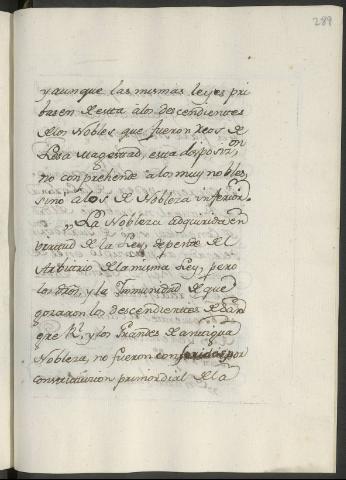 289
y aunque las mismas leyes pri
basen de esta á los descendientes
de los Nobles que fueron reos de
Lesa Magestad, esta disposizon
no conprehende a los muy nobles,
sino a los de Nobleza inferior.
" La Nobleza adquirida en
virtud de la Ley, depende del
Arbitrio de la misma Ley, pero
los dros, y la Inmunidad de que
gozaron los descendientes de San
gre Rl, y los Grandes de antigua
Nobleza, no fueron conferidos por
constitucion primordial de la